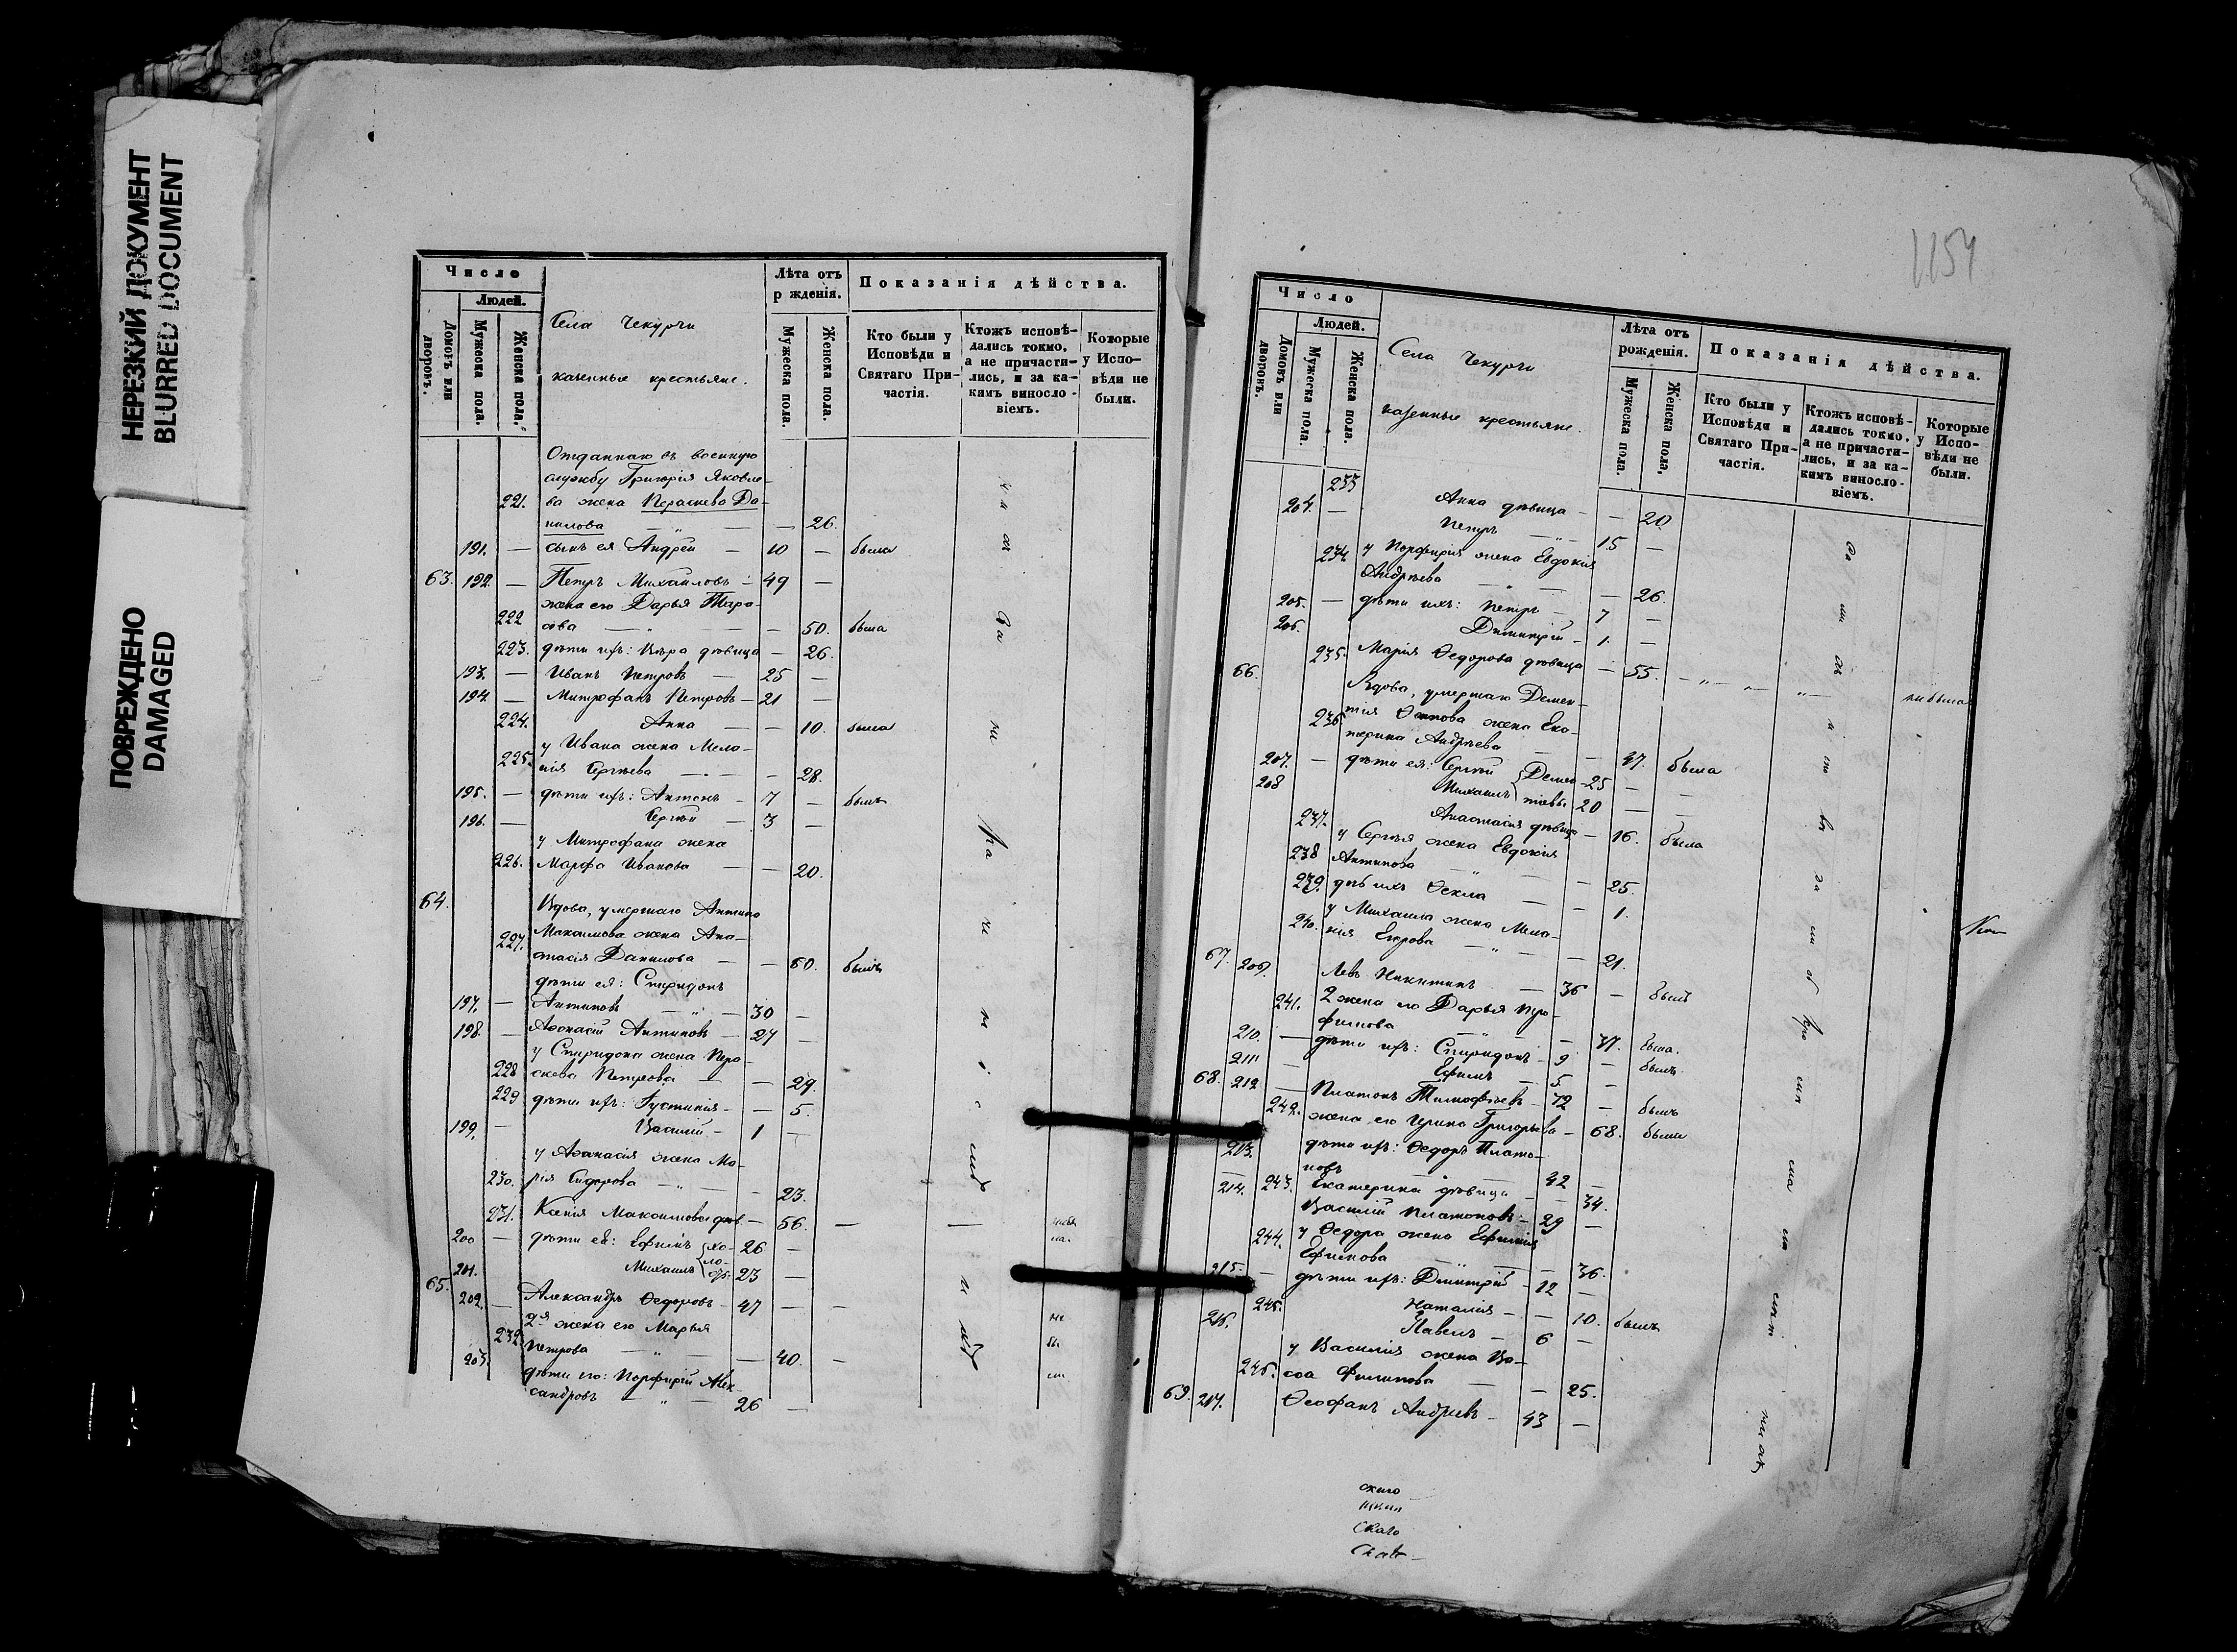 НЕРЕЗКИЙ ДОКУМЕНТ
BLURRED DOCUMENT
ПОВРЕЖДЕНО
DAMAGED
Число
Людей.
Домовъ или дворовъ.
Мужеска пола.
Женска пола.
Села Чекурчи
казенные крестьяне.
Лѣта отъ
р жденія.
Мужеска пола.
Женска пола.
Показанія дѣйства.
Кто были у
Исповѣди и
Святаго При-
частія.
Ктожъ исповѣ-
дались токмо,
а не причасти-
лись, и за ка-
кимъ винosло-
віемъ.
Которые
у Испо-
вѣди не
были.
Отданнаго въ военную
службу Григорія Яковле-
221. ва жена Параскева Да-
нилова — 26.
191. — сынъ ея Андрей — 10 — была
63. 192. — Петръ Михаиловъ — 49 —
жена его Дарья Тара-
222 сова — 50. была
223. дѣти ихъ: Вѣра дѣвица — 26.
193. — Иванъ Петровъ — 25 —
194. — Митрофанъ Петровъ — 21 —
224. Анна — 10. была
у Ивана жена Мела-
225. нія Сергѣева — 28.
195. — дѣти ихъ: Антонъ — 7 — былъ
196. — Сергѣй — 3 —
у Митрофана жена
226. Марфа Иванова — 20.
64. Вдова, умершаго Антипа
Максимова жена Ана-
227. стасія Данилова — 60. былъ
дѣти ея: Спиридонъ
197. — Антиповъ — 30 —
198. — Аѳанасій Антиповъ — 27 —
у Спиридона жена Пара-
228 скева Петрова — 29.
229 дѣти ихъ: Іустинія — 5.
199. — Василій — 1 —
у Аѳанасія жена Ма-
230. рія Сидорова — 23.
231. Ксенія Максимова дѣв. — 56. —
200 — дѣти ея: Ефимъ хо- 26 —
201. Михаилъ ло- 23 —
65. 202. — Александръ Ѳедоровъ — 47 —
2я жена его Марья
232. Петрова — 40. —
203. дѣти его: Порфирій Алек-
сандровъ — 26 —
1154
Число
Людей.
Домовъ или дворовъ.
Мужеска пола.
Женска пола.
Села Чекурчи
казенные крестьяне.
Лѣта отъ
рожденія.
Мужеска пола.
Женска пола.
Показанія дѣйства.
Кто были у
Исповѣди и
Святаго При-
частія.
Ктожъ исповѣ-
дались токмо,
а не причасти-
лись, и за ка-
кимъ винosло-
віемъ.
Которые
у Испо-
вѣди не
были.
233 Анна дѣвица — 20
204. — Петръ — 15 —
234 у Порфирія жена Евдокія
Андрѣева — 26.
205. — дѣти ихъ: Петръ — 7 —
206. Димитрій — 1. —
235. Марія Ѳедорова дѣвица — 55. — не была
66. Вдова, умершаго Демен-
тія Осипова жена Ека-
236. терина Андрѣева — 47. была
207. — дѣти ея: Сергѣй Демен- 25 —
208 Михаилъ тіевы 20 —
237. Анастасія дѣвица — 16. была
у Сергѣя жена Евдокія
238 Антипова — 25.
239. дѣв ихъ Ѳекла — 1.
у Михаила жена Мела-
240. нія Егорова — 21.
67. 209. Левъ Никитинъ — 36 — былъ
241. 2 жена его Дарья Про-
фимова — 37. была.
210. — дѣти ихъ: Спиридонъ — 9 — былъ
211 — Ефимъ — 5 —
68. 212 — Платонъ Тимофѣевъ — 72 — былъ
242. жена его Ирина Григорьева — 68. была
213. дѣти ихъ: Ѳедоръ Плато-
новъ — 42 —
243. Екатерина дѣвица — 34.
214. Василій Платоновъ — 29 —
244. у Ѳедора жена Ефимія
Ефимова — 36.
215. — дѣти ихъ: Дмитрій — 12 —
245. Наталія — 10. былъ
216. Павелъ — 6 —
у Василія жена Ва-
246. сса Филипова — 25.
69. 217. Ѳеофанъ Андрѣевъ — 43 —